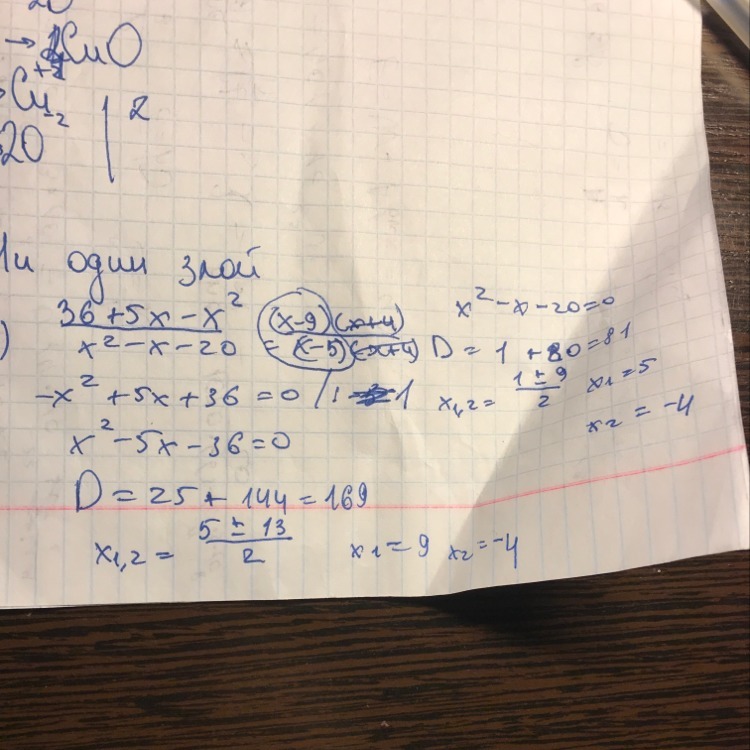 20
→ CuO
Cu +2
-2 | 2
20
Ни один злой
) 36+5x-x² / x²-x-20 = (x-9)(x+4) / (x-5)(x+4)
x²-x-20=0
D = 1 + 80 = 81
x1,2 = 1±9 / 2 x1=5
x2 = -4
-x²+5x+36=0 /: 1
x²-5x-36=0
D = 25 + 144 = 169
x1,2 = 5±13 / 2 x1=9 x2=-4